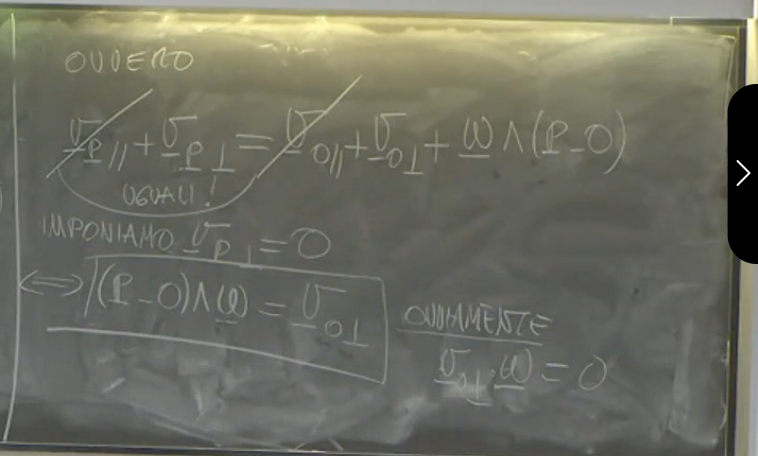 OVVERO
v̲_P∥ + v̲_P⊥ = v̲_O∥ + v̲_O⊥ + ω̲ ∧ (P-O)
UGUALI!
IMPONIAMO v̲_P⊥ = 0
⟺ (P-O) ∧ ω̲ = v̲_O⊥
OVVIAMENTE
v̲_O⊥ · ω̲ = 0